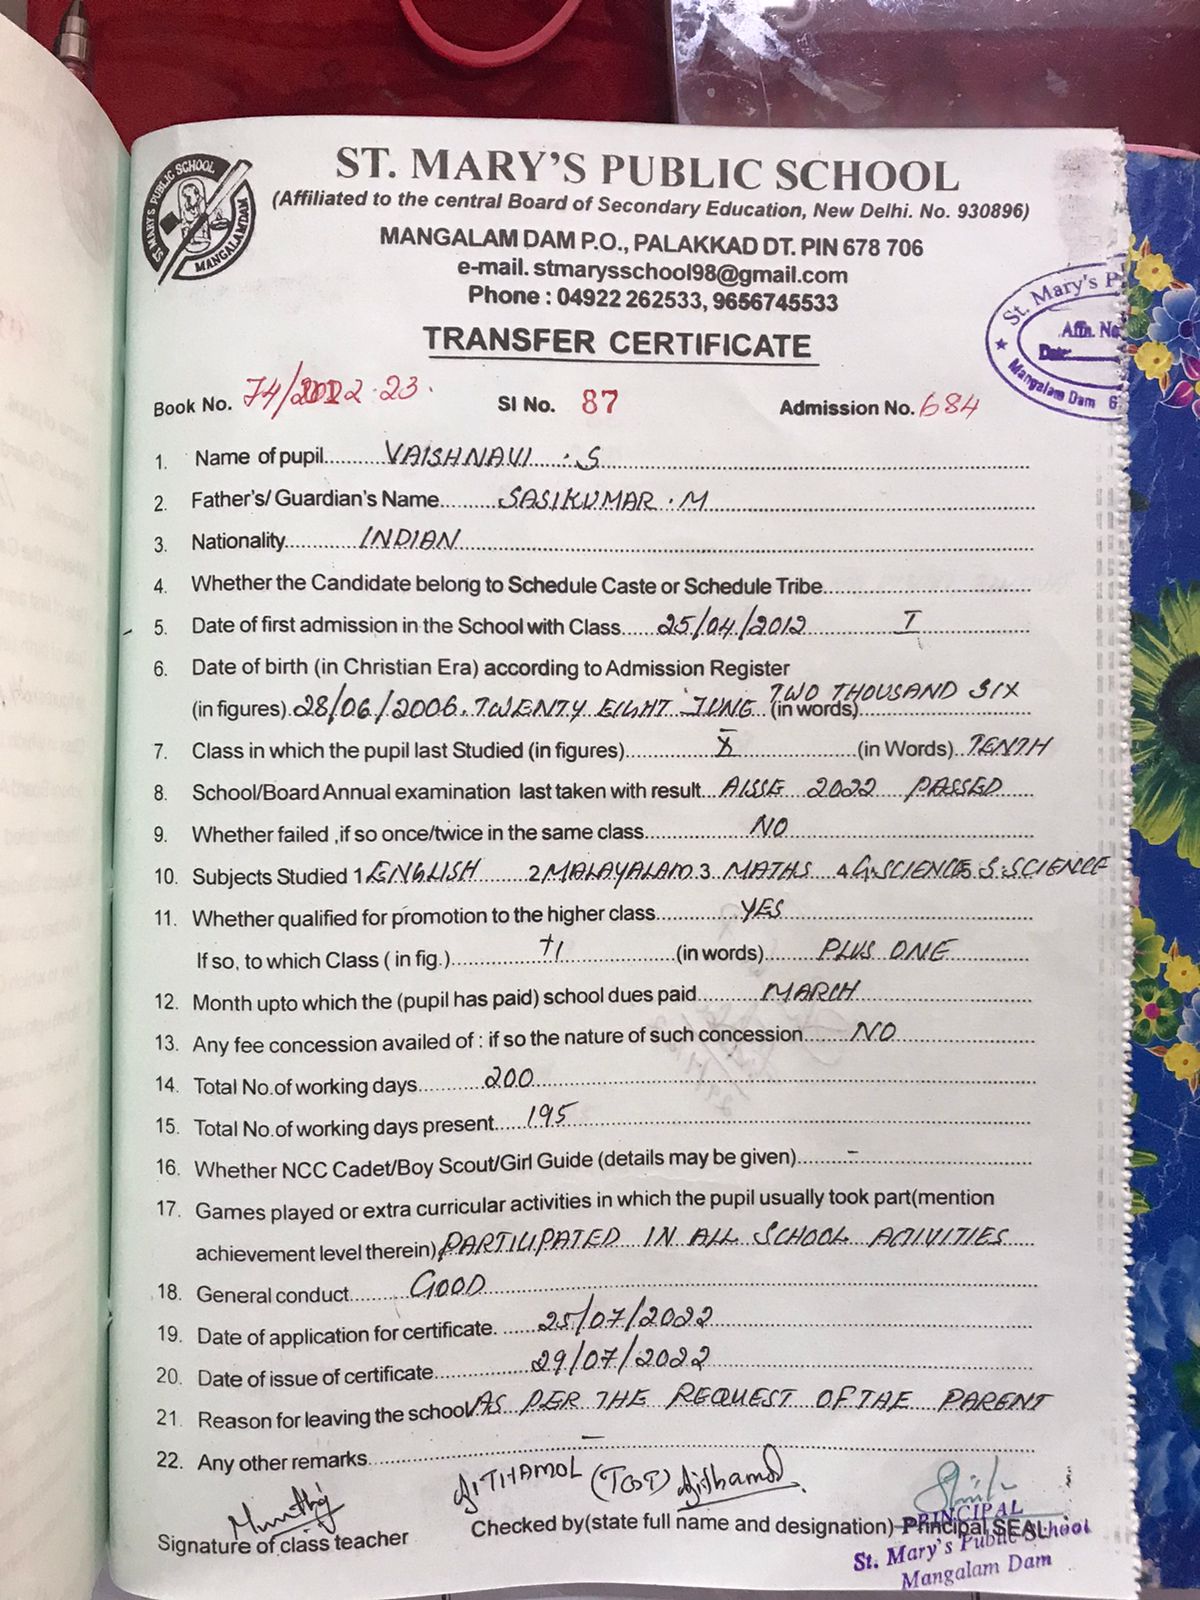 ST. MARY'S PUBLIC SCHOOL
MANGALAM DAM
ST. MARY'S PUBLIC SCHOOL
(Affiliated to the central Board of Secondary Education, New Delhi. No. 930896)
MANGALAM DAM P.O., PALAKKAD DT. PIN 678 706
e-mail. stmarysschool98@gmail.com
Phone : 04922 262533, 9656745533
St. Mary's P
Affn. No
Date:
Mangalam Dam 6
TRANSFER CERTIFICATE
Book No. 74/2022-23. SI No. 87 Admission No. 684
1. Name of pupil VAISHNAVI . S
2. Father's/ Guardian's Name SASIKUMAR . M
3. Nationality INDIAN
4. Whether the Candidate belong to Schedule Caste or Schedule Tribe
5. Date of first admission in the School with Class 25/04/2012 I
6. Date of birth (in Christian Era) according to Admission Register
(in figures) 28/06/2006. TWENTY EIGHT JUNE (in words) TWO THOUSAND SIX
7. Class in which the pupil last Studied (in figures) X (in Words) TENTH
8. School/Board Annual examination last taken with result AISSE 2022 PASSED
9. Whether failed ,if so once/twice in the same class NO
10. Subjects Studied 1 ENGLISH 2 MALAYALAM 3 MATHS 4 G.SCIENCE 5 S.SCIENCE
11. Whether qualified for promotion to the higher class YES
If so, to which Class ( in fig.) +1 (in words) PLUS ONE
12. Month upto which the (pupil has paid) school dues paid MARCH
13. Any fee concession availed of : if so the nature of such concession NO
14. Total No.of working days 200
15. Total No.of working days present 195
16. Whether NCC Cadet/Boy Scout/Girl Guide (details may be given) -
17. Games played or extra curricular activities in which the pupil usually took part(mention
achievement level therein) PARTICIPATED IN ALL SCHOOL ACTIVITIES
18. General conduct GOOD
19. Date of application for certificate. 25/07/2022
20. Date of issue of certificate 29/07/2022
21. Reason for leaving the school AS PER THE REQUEST OF THE PARENT
22. Any other remarks -
AJITHAMOL (TGT) Ajithamol
Signature of class teacher Checked by(state full name and designation) Principal SEAL
PRINCIPAL
St. Mary's Public School
Mangalam Dam